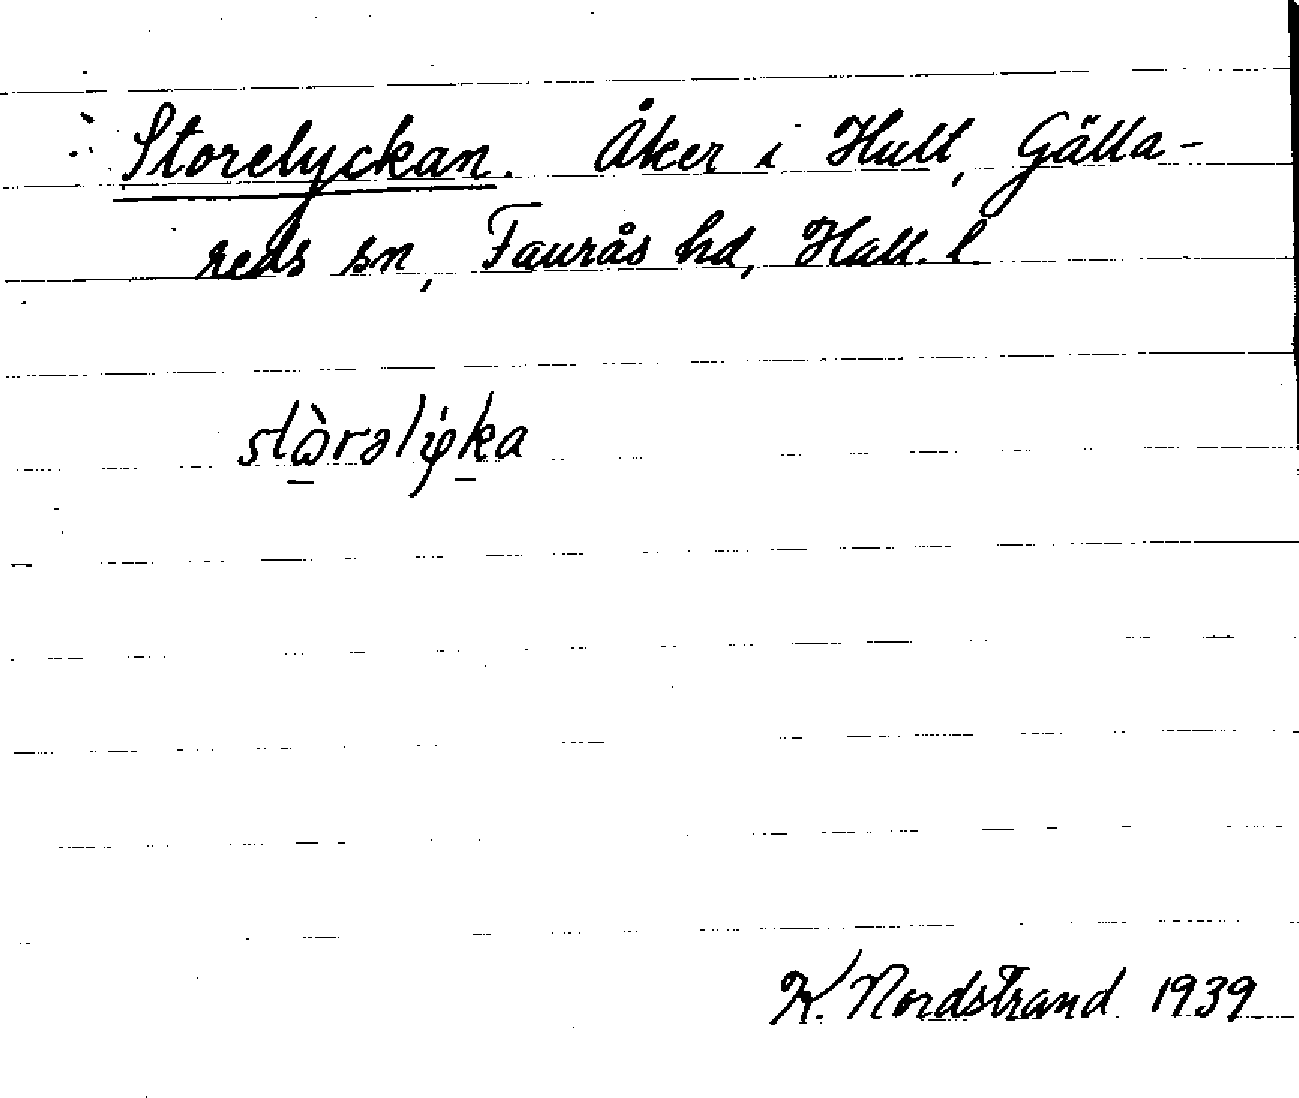 Storelyckan. Åker i Hult, Gälla-
reds sn, Faurås hd, Hall. l.
stꞷ̀rəlykka
K. Nordstrand 1939